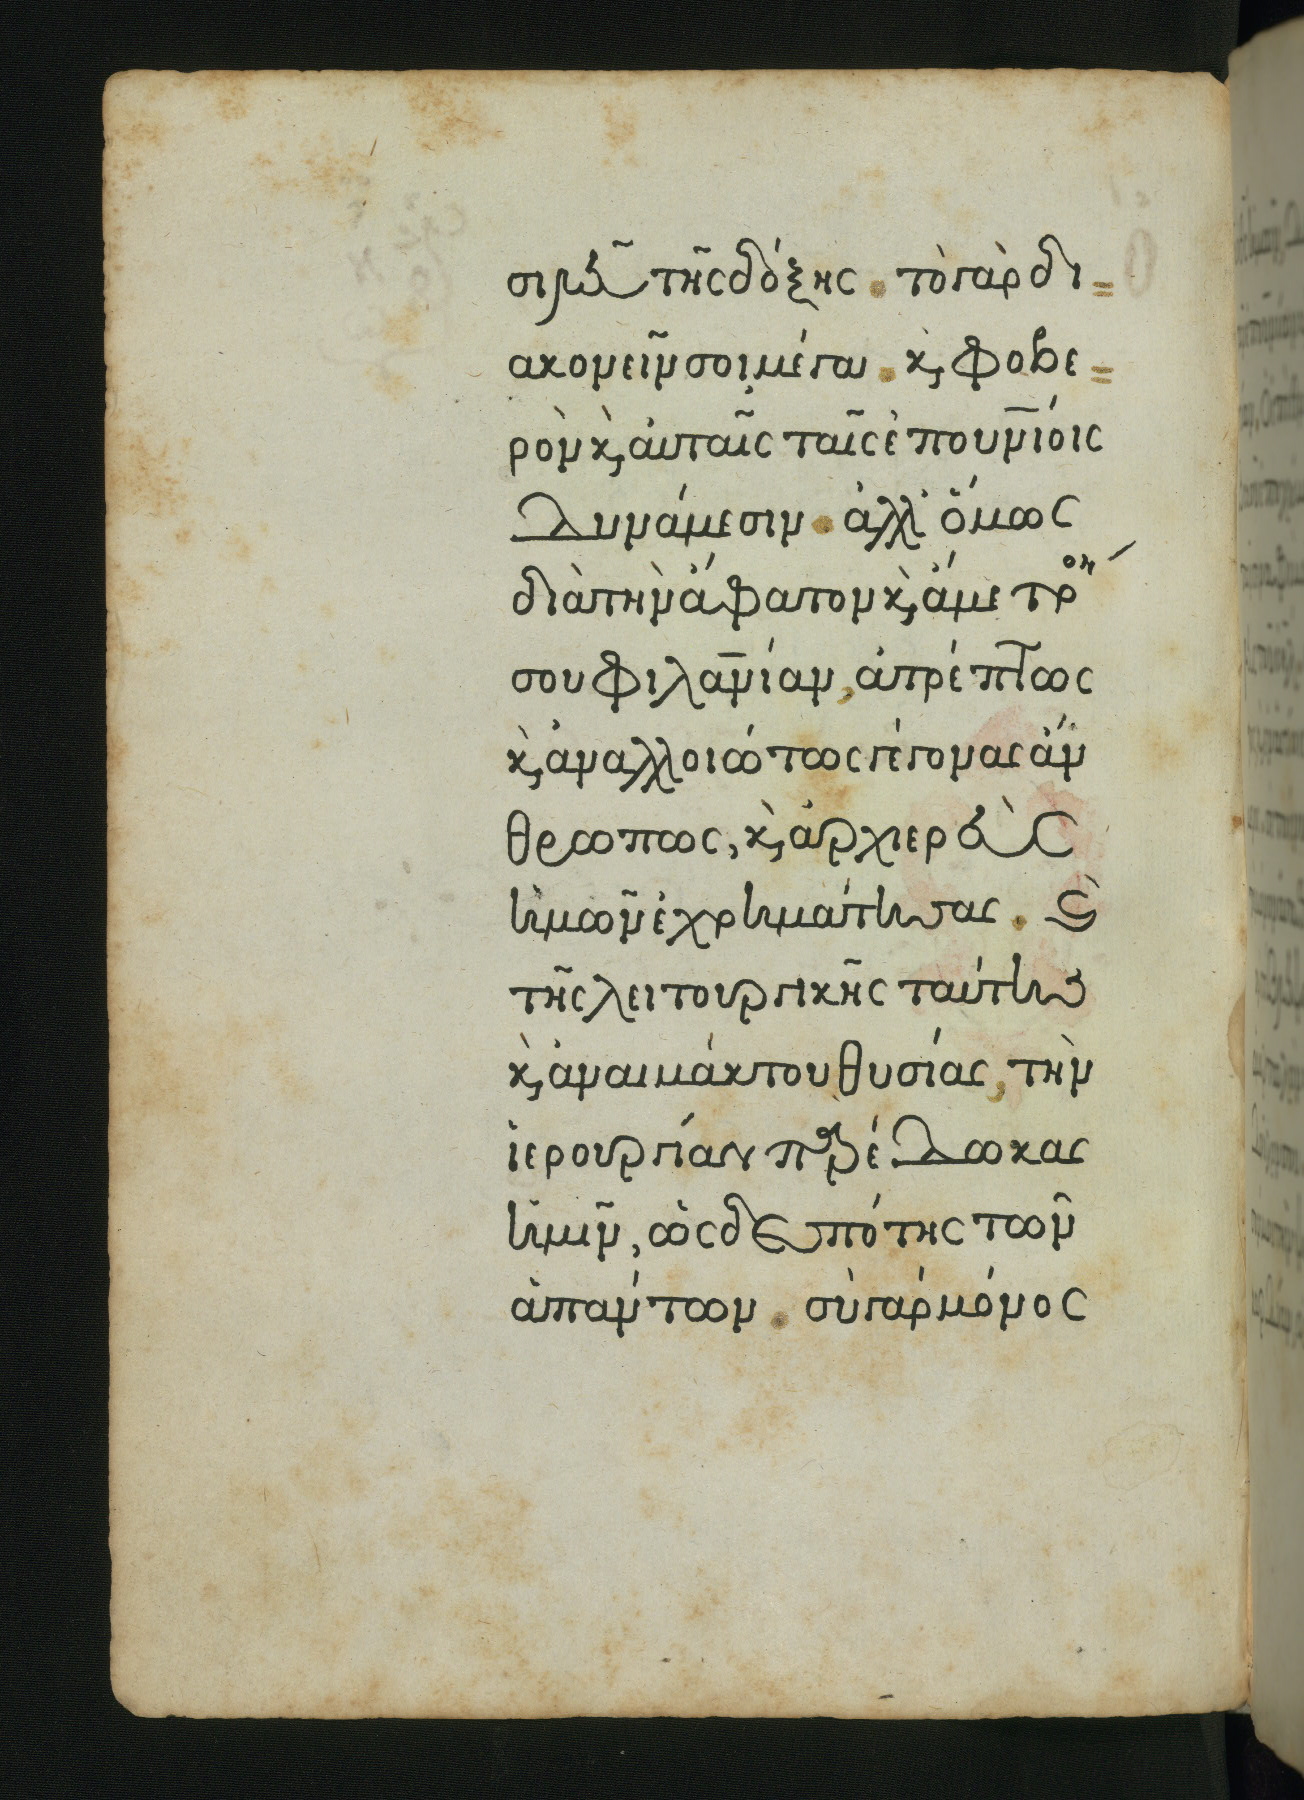 σιλεῦ τῆς δόξης . τὸ γὰρ δι=
ακονεῖν σοι μέγα . κ, φοβε=
ρὸν κ, ἀυταῖς ταῖς ἐπουνίοις
Δυνάμεσιν . ἀλλ' ὅμως
διὰ τὴν ἄφατον κ, ἄμετρον
σου φιλανίαν, ἀτρέπτως
κ, ἀναλλοιώτως γέγονας ἄν
θρωπως, κ, ἀρχιερεὺς
ἡμῶν ἐχρημάτησας . κὶ
τῆς λειτουργικῆς ταύτης
κ, ἀναιμάκτου θυσίας, τὴν
ἱερουργίαν παρέΔωκας
ἡμῖν, ὡς δεσπότης τῶν
ἁπάντων . σὺ γὰρ μόνος